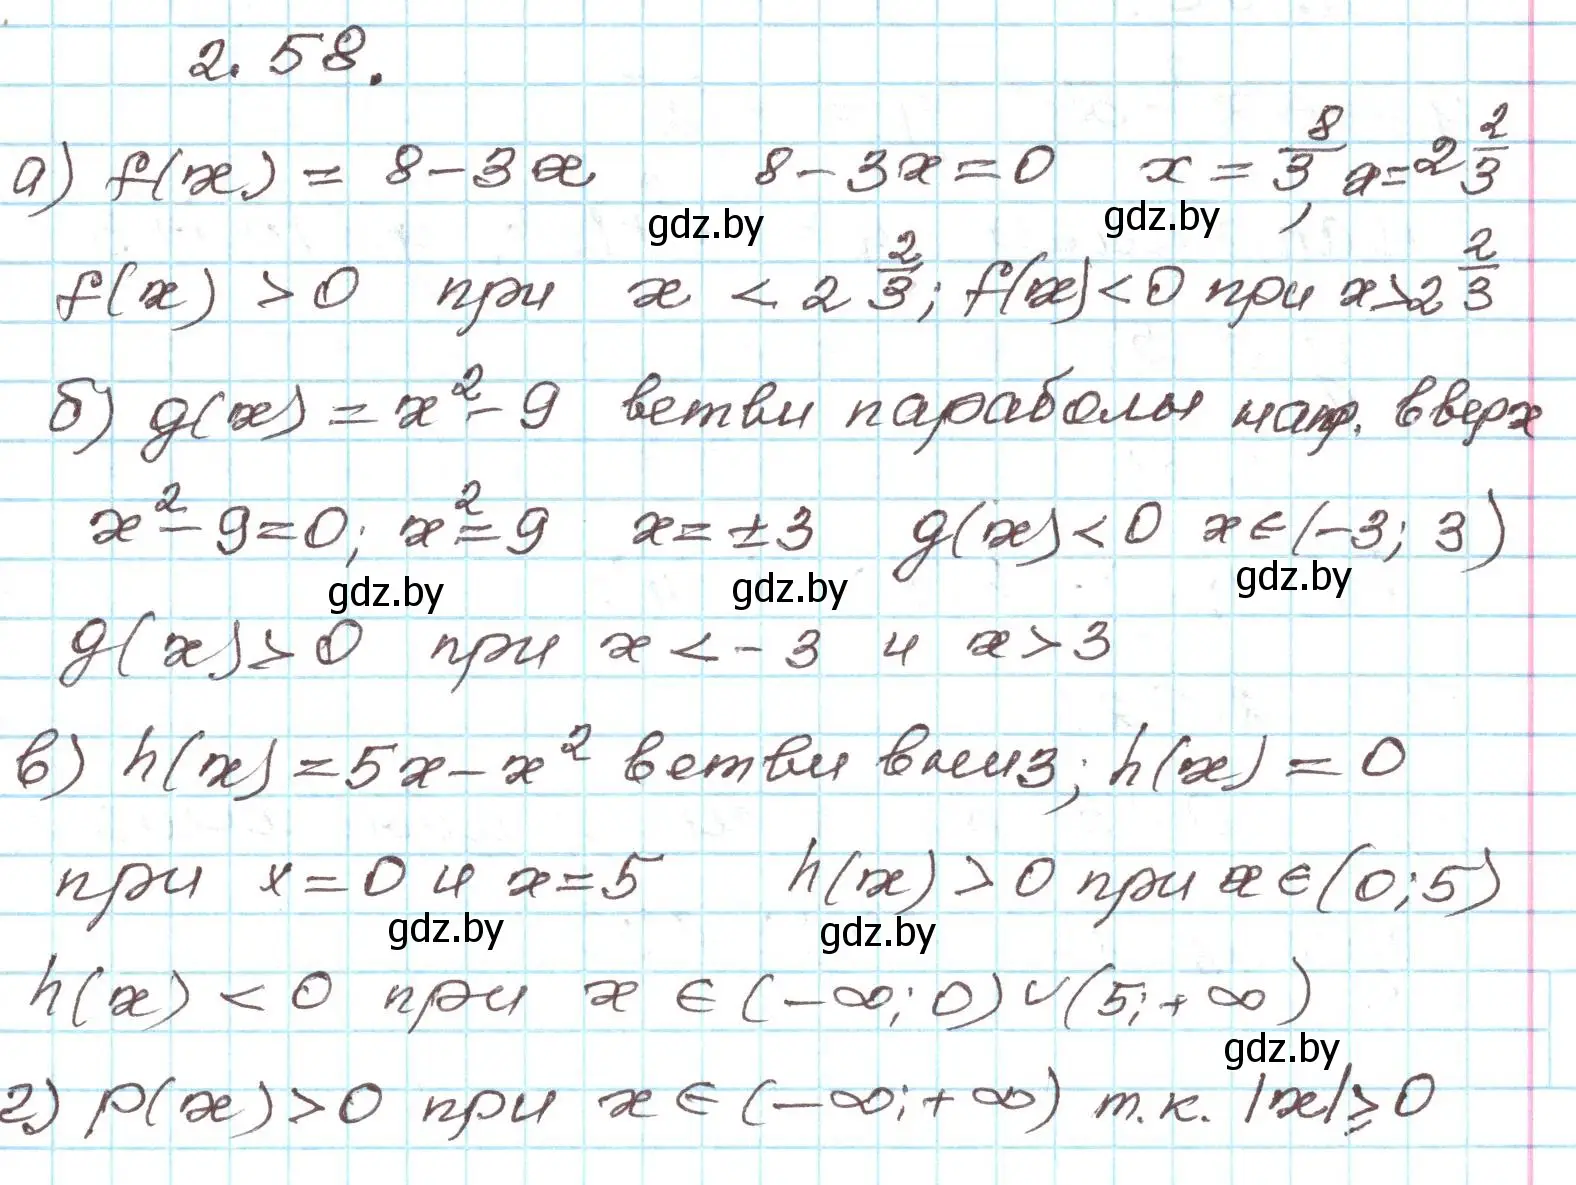 2.58.
а) f(x) = 8 - 3x 8 - 3x = 0 x = 8/3, x = 2 2/3
gdz.by gdz.by
f(x) > 0 при x < 2 2/3; f(x) < 0 при x > 2 2/3
б) g(x) = x² - 9 ветви параболы напр. вверх
x² - 9 = 0; x² = 9 x = ±3 g(x) < 0 x ∈ (-3; 3)
gdz.by gdz.by gdz.by
g(x) > 0 при x < -3 и x > 3
в) h(x) = 5x - x² ветви вниз; h(x) = 0
при x = 0 и x = 5 h(x) > 0 при x ∈ (0; 5)
gdz.by gdz.by
h(x) < 0 при x ∈ (-∞; 0) ∪ (5; +∞)
gdz.by
г) p(x) > 0 при x ∈ (-∞; +∞) т.к. |x| ≥ 0